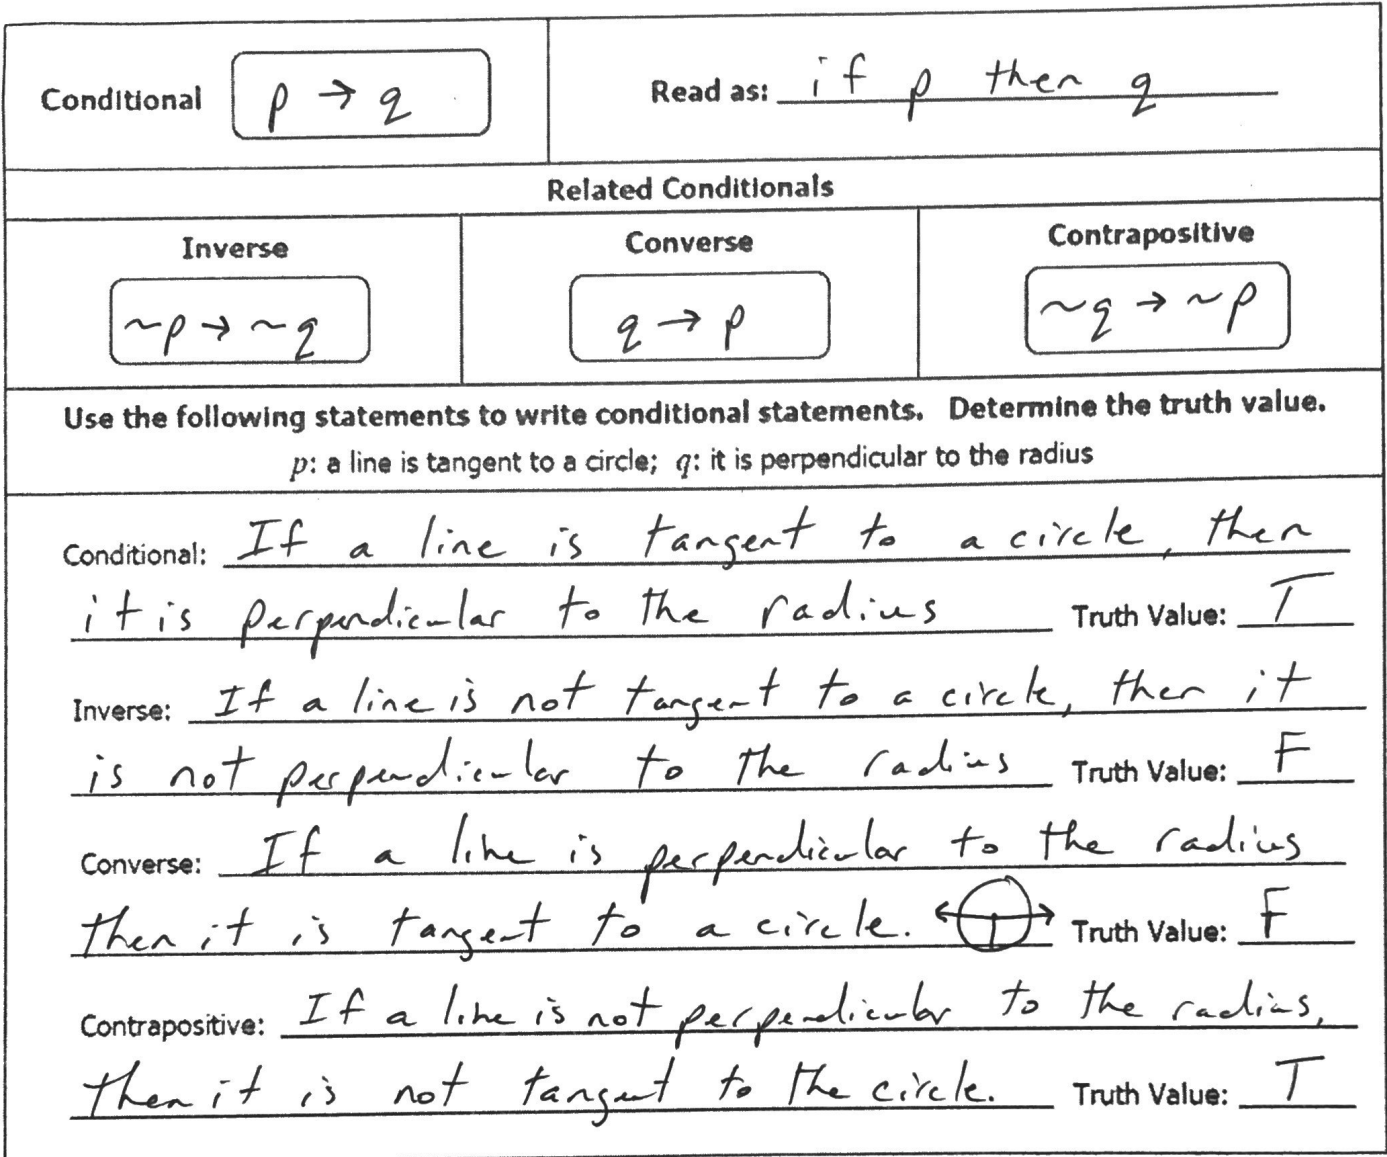 Conditional p → q Read as: if p then q
Related Conditionals
Inverse Converse Contrapositive
~p → ~q q → p ~q → ~p
Use the following statements to write conditional statements. Determine the truth value.
p: a line is tangent to a circle; q: it is perpendicular to the radius
Conditional: If a line is tangent to a circle, then
it is perpendicular to the radius Truth Value: T
Inverse: If a line is not tangent to a circle, then it
is not perpendicular to the radius Truth Value: F
Converse: If a line is perpendicular to the radius
then it is tangent to a circle. Truth Value: F
Contrapositive: If a line is not perpendicular to the radius,
then it is not tangent to the circle. Truth Value: T